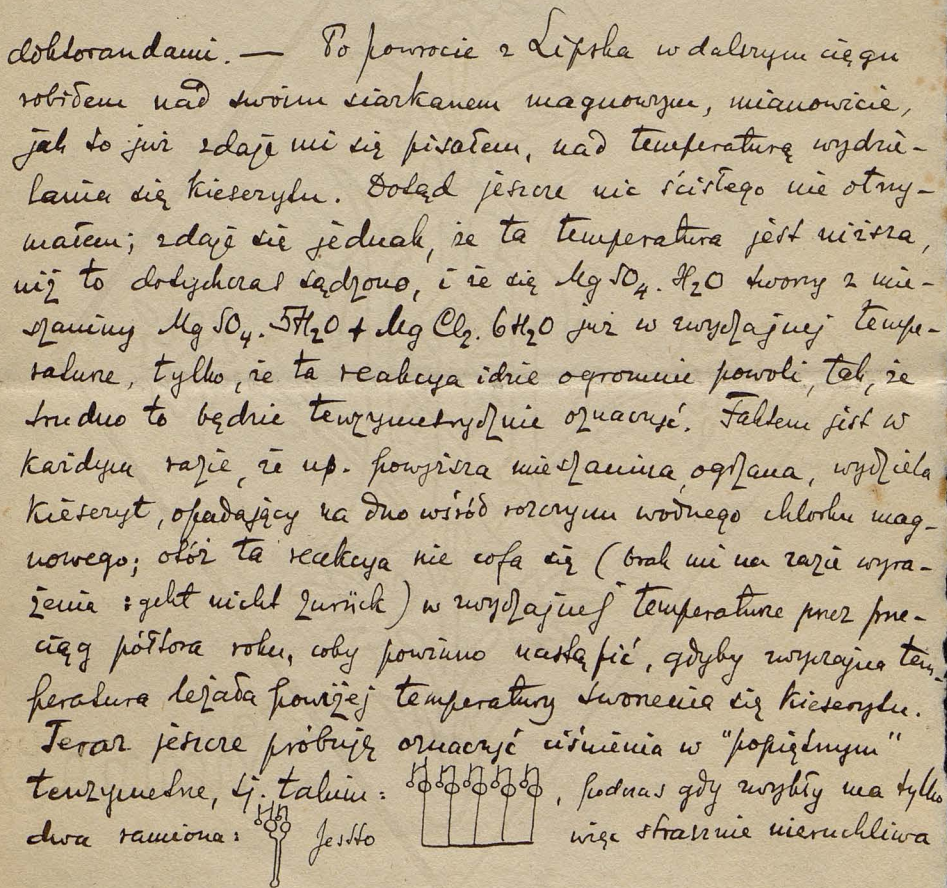 doktorandami. — Po powrocie z Lipska w dalszym ciągu
robiłem nad swoim siarkanem magnowym, mianowicie,
jak to już zdaje mi się pisałem, nad temperaturą wydzie-
lania się kieserytu. Dotąd jeszcze nic ścisłego nie otrzy-
małem; zdaje się jednak, że ta temperatura jest niższa,
niż to dotychczas sądzono, i że się MgSO4. H2O tworzy z mie-
szaniny MgSO4. 5H2O + MgCl2. 6H2O już w zwyczajnej tempe-
raturze, tylko, że ta reakcya idzie ogromnie powoli, tak, że
trudno to będzie tenzymetrycznie oznaczyć. Faktem jest w
każdym razie, że np. powyższa mieszanina, ogrzana, wydziela
kieseryt, opadający na dno wśród rozczynu wodnego chlorku mag-
nowego; otóż ta reakcya nie cofa się (brak mi na razie wyra-
żenia: geht nicht zurück) w zwyczajnej temperaturze przez prze-
ciąg półtora roku, coby powinno nastąpić, gdyby zwyczajna tem-
peratura leżała powyżej temperatury tworzenia się kieserytu.
Teraz jeszcze próbuję oznaczyć ciśnienia w "popiętnym"
tenzymetrze, tj. takim: , podczas gdy zwykły ma tylko
dwa ramiona: Jestto więc strasznie nieruchliwa